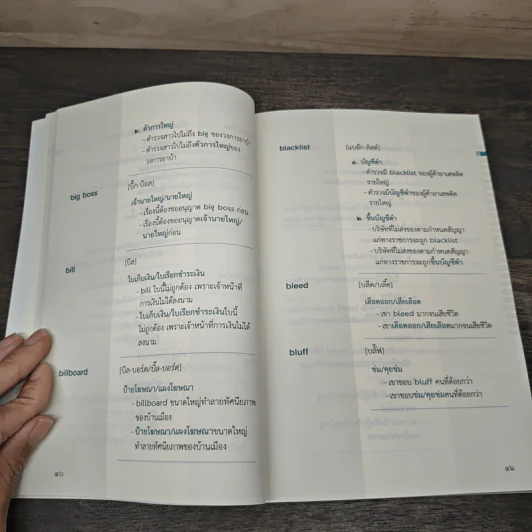 ๒. ตัวการใหญ่
- ตำรวจสาวไปไม่ถึง big ของวงการยาบ้า
- ตำรวจสาวไปไม่ถึงตัวการใหญ่ของ
วงการยาบ้า
big boss [บิ๊ก-บ๊อส]
เจ้านายใหญ่/นายใหญ่
- เรื่องนี้ต้องขออนุญาต big boss ก่อน
- เรื่องนี้ต้องขออนุญาตเจ้านายใหญ่/
นายใหญ่ก่อน
bill [บิล]
ใบเก็บเงิน/ใบเรียกชำระเงิน
- bill ใบนี้ไม่ถูกต้อง เพราะเจ้าหน้าที่
การเงินไม่ได้ลงนาม
- ใบเก็บเงิน/ใบเรียกชำระเงินใบนี้
ไม่ถูกต้อง เพราะเจ้าหน้าที่การเงินไม่ได้
ลงนาม
billboard [บิล-บอร์ด/บิ๊ล-บอร์ด]
ป้ายโฆษณา/แผงโฆษณา
- billboard ขนาดใหญ่ทำลายทัศนียภาพ
ของบ้านเมือง
- ป้ายโฆษณา/แผงโฆษณาขนาดใหญ่
ทำลายทัศนียภาพของบ้านเมือง
blacklist [แบล๊ก-ลิสต์]
๑. บัญชีดำ
- ตำรวจมี blacklist ของผู้ค้ายาเสพติด
รายใหญ่
- ตำรวจมีบัญชีดำของผู้ค้ายาเสพติด
รายใหญ่
๒. ขึ้นบัญชีดำ
- บริษัทที่ไม่ส่งของตามกำหนดสัญญา
แก่ทางราชการจะถูก blacklist
- บริษัทที่ไม่ส่งของตามกำหนดสัญญา
แก่ทางราชการจะถูกขึ้นบัญชีดำ
bleed [บลีด/บลี้ด]
เลือดออก/เสียเลือด
- เขา bleed มากจนเสียชีวิต
- เขาเลือดออก/เสียเลือดมากจนเสียชีวิต
bluff [บลั๊ฟ]
ข่ม/คุยข่ม
- เขาชอบ bluff คนที่ด้อยกว่า
- เขาชอบข่ม/คุยข่มคนที่ด้อยกว่า